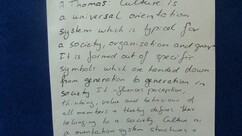 A Thomas: Culture is
a universal orientation
system which is typical for
a society, organization and group
It is formed out of specific
symbols which are handed down
from generation to generation in
society. It influences perception,
thinking, value and behaviour of
all members & thereby defines their
belonging to a society. Culture as
a orientation system structures a